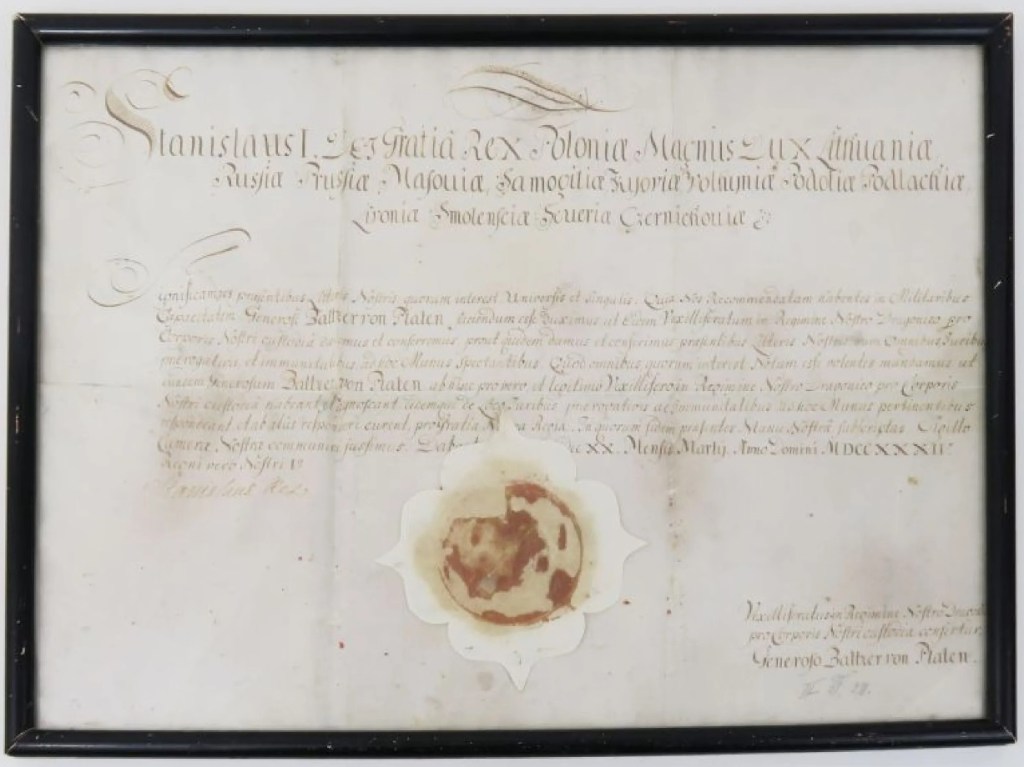 Stanislaus I. Dei Gratiâ Rex Poloniæ Magnus Dux Lithuaniæ
Russiæ Prussiæ Masoviæ Samogitiæ Kyoviæ Volhyniæ Podoliæ Podlachiæ
Livoniæ Smolensciæ Severiæ Czernichoviæ &
Significamus præsentibus Literis Nostris quorum interest Universis et singulis. Quia Nos Recommendatam habentes in Militaribus
Capacitatem Generosi Baltzer von Platen, faciendum esse duximus ut Eidem Vexilliferatum in Regimine Nostro Dragonico pro
Corporis Nostri custodia daremus et conferremus prout quidem damus et conferimus præsentibus Literis Nostris cum Omnibus Juribus
prærogativa, et immunitatibus ad hoc Munus spectantibus. Quod omnibus quorum interest Notum esse volentes mandamus ut
eundem Generosum Baltzer von Platen ab hinc pro vero et legitimo Vexillifero in Regimine Nostro Dragonico pro Corporis
Nostri custodia habeant et agnoscant Eidemque de Juribus prærogativis ac immunitatibus ad hoc Munus pertinentibus
respondeant et ab aliis responderi curent, pro gratia Nostra Regia. In quorum fidem præsentes Manu Nostrâ subscriptas Sigillo
Cameræ Nostræ communiri jussimus. Dab XX. Mensis Martij. Anno Domini MDCCXXXIV
Regni vero Nostri 1º
Stanislaus Rex
Vexilliferatus in Regimine Nostro
pro Corporis Nostri custodia confertur
Generoso Baltzer von Platen.